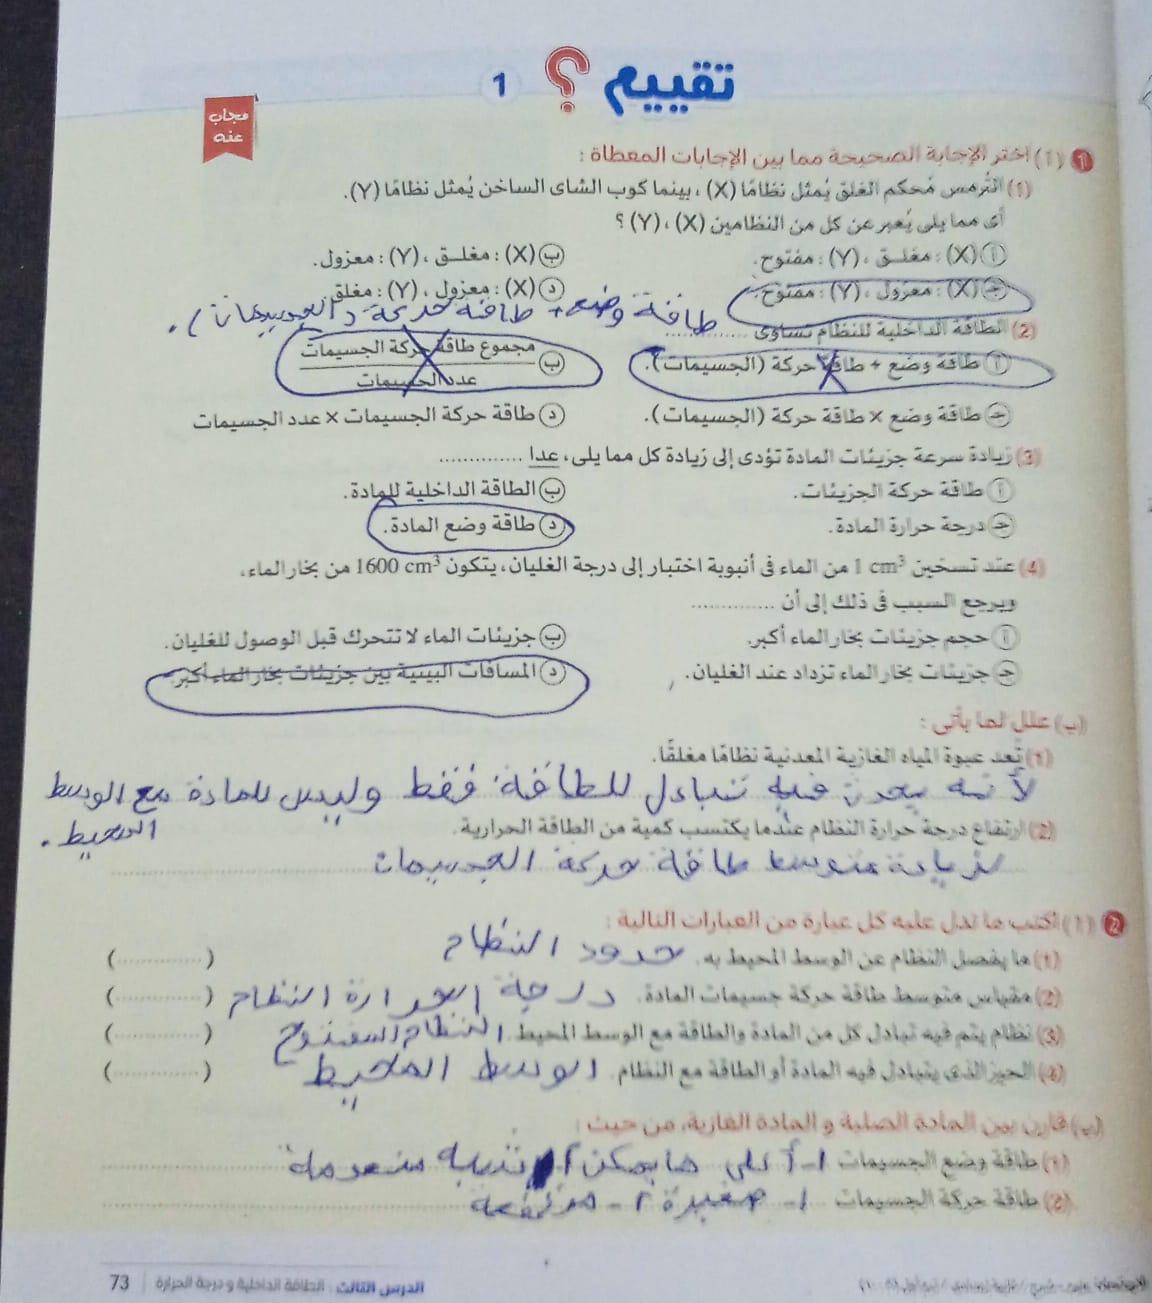 تقييم ؟ 1
مجاب عنه
1 (أ) اختر الإجابة الصحيحة مما بين الإجابات المعطاة :
(1) الترمس مُحكم الغلق يُمثل نظامًا (X)، بينما كوب الشاى الساخن يُمثل نظامًا (Y).
أى مما يلى يُعبر عن كل من النظامين (X)، (Y) ؟
أ (X) : مغلـق ، (Y) : مفتوح.
ب (X) : مغلـق ، (Y) : معزول.
جـ (X) : معزول ، (Y) : مفتوح.
د (X) : معزول ، (Y) : مغلق
طاقة وضع + طاقة حركة (الجسيمات).
(2) الطاقة الداخلية للنظام تساوى ............
أ طاقة وضع + طاقة حركة (الجسيمات).
ب مجموع طاقة حركة الجسيمات
عدد الجسيمات
جـ طاقة وضع × طاقة حركة (الجسيمات).
د طاقة حركة الجسيمات × عدد الجسيمات
(3) زيادة سرعة جزيئات المادة تؤدى إلى زيادة كل مما يلى، عدا ............
أ طاقة حركة الجزيئات.
ب الطاقة الداخلية للمادة.
جـ درجة حرارة المادة.
د طاقة وضع المادة.
(4) عند تسخين 1 cm³ من الماء فى أنبوبة اختبار إلى درجة الغليان، يتكون 1600 cm³ من بخار الماء،
ويرجع السبب فى ذلك إلى أن ............
أ حجم جزيئات بخار الماء أكبر.
ب جزيئات الماء لا تتحرك قبل الوصول للغليان.
جـ جزيئات بخار الماء تزداد عند الغليان.
د المسافات البينية بين جزيئات بخار الماء أكبر.
(ب) علل لما يأتى :
(1) تُعد عبوة المياه الغازية المعدنية نظامًا مغلقًا.
لأنه يحدث فيه تبادل للطاقة فقط وليس للمادة مع الوسط
المحيط.
(2) ارتفاع درجة حرارة النظام عندما يكتسب كمية من الطاقة الحرارية.
لزيادة متوسط طاقة حركة الجسيمات
2 (أ) اكتب ما تدل عليه كل عبارة من العبارات التالية :
(1) ما يفصل النظام عن الوسط المحيط به. حدود النظام (............)
(2) مقياس متوسط طاقة حركة جسيمات المادة. درجة الحرارة النظام (............)
(3) نظام يتم فيه تبادل كل من المادة والطاقة مع الوسط المحيط. النظام المفتوح (............)
(4) الحيز الذى يتبادل فيه المادة أو الطاقة مع النظام. الوسط المحيط (............)
(ب) قارن بين المادة الصلبة و المادة الغازية، من حيث :
(1) طاقة وضع الجسيمات 1- أعلى ما يمكن 2 شبه منعدمة
(2) طاقة حركة الجسيمات 1- صغيرة 2- مرتفعة
الدرس الثالث : الطاقة الداخلية و درجة الحرارة | 73